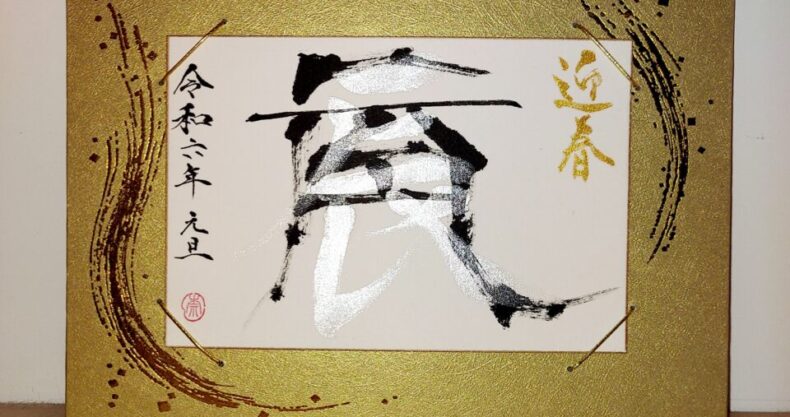 迎春
辰
令和六年 元旦